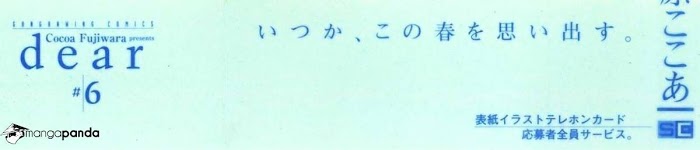 GANGANWING COMICS
Cocoa Fujiwara presents
dear
#6
いつか、この春を思い出す。
原ここあ
表紙イラストテレホンカード
応募者全員サービス。
SC
mangapanda